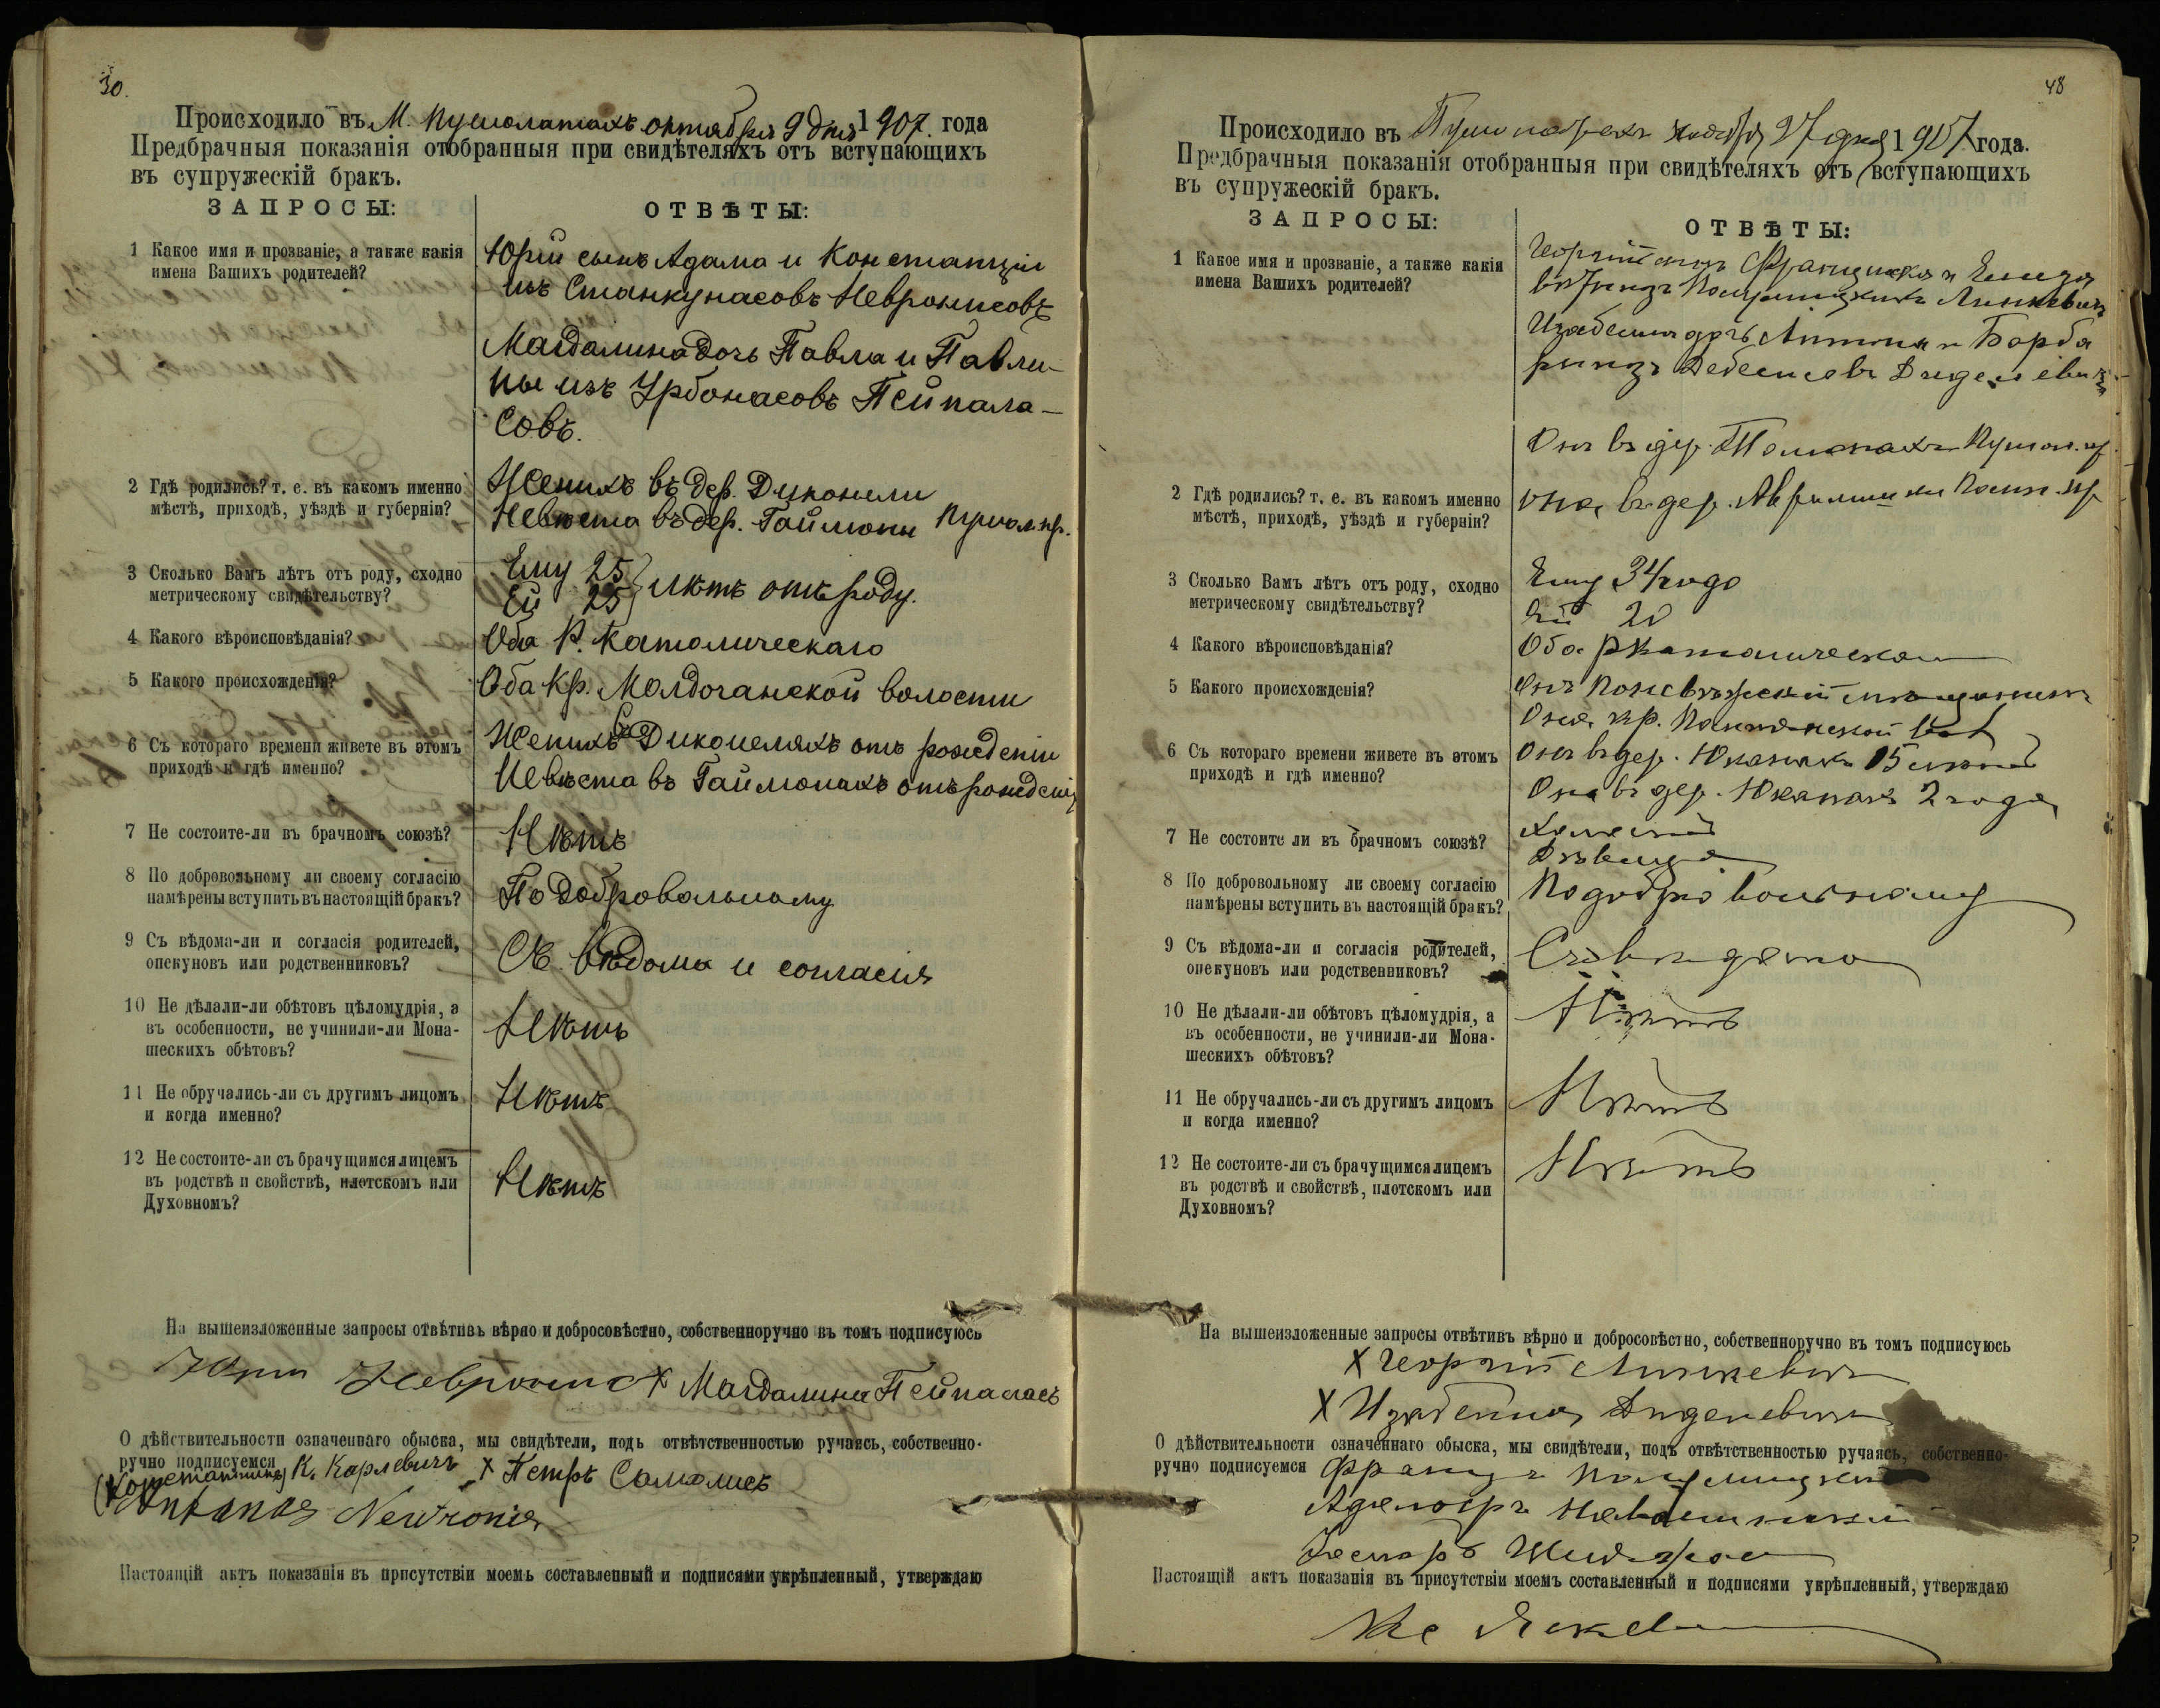 30.
Происходило въ М. Пушолатахъ октября 9 дня 1907. года
Предбрачныя показанія отобранныя при свидѣтеляхъ отъ вступающихъ
въ супружескій бракъ.
ЗАПРОСЫ:
ОТВѢТЫ:
1 Какое имя и прозваніе, а также какія
имена Вашихъ родителей?
Юрій сынъ Адама и Констанціи
изъ Станкунасовъ Невронисовъ
Магдалина дочь Павла и Павли-
ны изъ Урбонасовъ Пейпала-
совъ.
2 Гдѣ родились? т. е. въ какомъ именно
мѣстѣ, приходѣ, уѣздѣ и губерніи?
Женихъ въ дер. Диконели
Невѣста въ дер. Гаймоны Пушол. пр.
3 Сколько Вамъ лѣтъ отъ роду, сходно
метрическому свидѣтельству?
Ему 25
Ей 25 лѣтъ отъ роду.
4 Какого вѣроисповѣданія?
Оба Р. Католическаго
5 Какого происхожденія?
Оба Кр. Малдочанской волости
6 Съ котораго времени живете въ этомъ
приходѣ и гдѣ именно?
Женихъ въ Диконеляхъ отъ рожденія
Невѣста въ Гаймонахъ отъ рожденія
7 Не состоите-ли въ брачномъ союзѣ?
Нѣтъ
8 По добровольному ли своему согласію
намѣрены вступить въ настоящій бракъ?
По добровольному
9 Съ вѣдома-ли и согласія родителей,
опекуновъ или родственниковъ?
Съ вѣдома и согласія
10 Не дѣлали-ли обѣтовъ цѣломудрія, а
въ особенности, не учинили-ли Мона-
шескихъ обѣтовъ?
Нѣтъ
11 Не обручались-ли съ другимъ лицомъ
и когда именно?
Нѣтъ
12 Не состоите-ли съ брачущимся лицемъ
въ родствѣ и свойствѣ, плотскомъ или
Духовномъ?
Нѣтъ
На вышеизложенные запросы отвѣтивъ вѣрно и добросовѣстно, собственноручно въ томъ подписуюсь
Юрій Невронис X Магдалина Пейпаласъ
О дѣйствительности означеннаго обыска, мы свидѣтели, подъ отвѣтственностью ручаясь, собственно-
ручно подписуемся К. Карлевичъ X Петръ Самолисъ
(Константинъ)
Antanas Newronis
Настоящій актъ показанія въ присутствіи моемъ составленный и подписями укрѣпленный, утверждаю
48
Происходило въ ноября 27 дня 1907 года.
Предбрачныя показанія отобранныя при свидѣтеляхъ отъ вступающихъ
въ супружескій бракъ.
ЗАПРОСЫ:
ОТВѢТЫ:
1 Какое имя и прозваніе, а также какія
имена Вашихъ родителей?
Георгій сынъ Францишка и Елиза
веты изъ Линкевичъ
Изабелла дочь Антона и Барба
ры изъ
2 Гдѣ родились? т. е. въ какомъ именно
мѣстѣ, приходѣ, уѣздѣ и губерніи?
Онъ въ дер. Пушол. пр.
она въ дер. пр
3 Сколько Вамъ лѣтъ отъ роду, сходно
метрическому свидѣтельству?
Ему 34 года
Ей 20
4 Какого вѣроисповѣданія?
Оба р католическаго
5 Какого происхожденія?
Онъ Поневѣжскій мѣщанинъ
Она кр. вол
6 Съ котораго времени живете въ этомъ
приходѣ и гдѣ именно?
Онъ въ дер. Юканахъ 15 лѣтъ
Она въ дер. Юканахъ 2 года
7 Не состоите ли въ брачномъ союзѣ?
Холостой
Дѣвица
8 По добровольному ли своему согласію
намѣрены вступить въ настоящій бракъ?
По добровольному
9 Съ вѣдома-ли и согласія родителей,
опекуновъ или родственниковъ?
Съ вѣдома
10 Не дѣлали-ли обѣтовъ цѣломудрія, а
въ особенности, не учинили-ли Мона-
шескихъ обѣтовъ?
Нѣтъ
11 Не обручались-ли съ другимъ лицомъ
и когда именно?
Нѣтъ
12 Не состоите-ли съ брачущимся лицемъ
въ родствѣ и свойствѣ, плотскомъ или
Духовномъ?
Нѣтъ
На вышеизложенные запросы отвѣтивъ вѣрно и добросовѣстно, собственноручно въ томъ подписуюсь
X Георгій Линкевичъ
X Изабелла
О дѣйствительности означеннаго обыска, мы свидѣтели, подъ отвѣтственностью ручаясь, собственно-
ручно подписуемся Францъ
Настоящій актъ показанія въ присутствіи моемъ составленный и подписями укрѣпленный, утверждаю